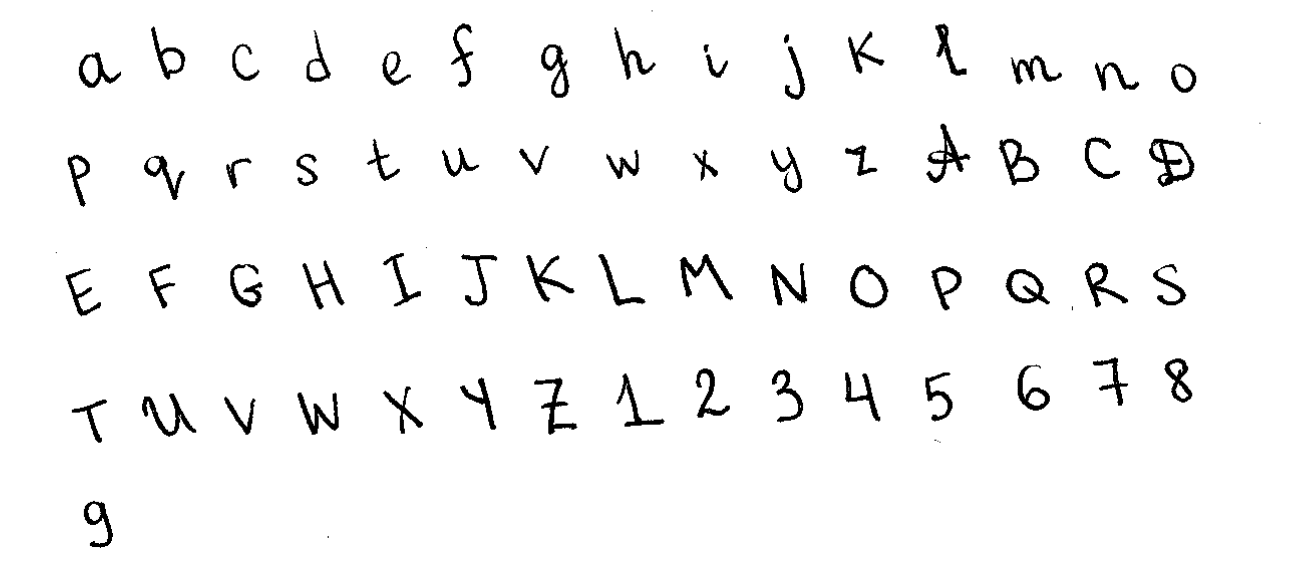 a b c d e f g h i j K l m n o
p q r s t u v w x y z A B C D
E F G H I J K L M N O P Q R S
T U V W X Y Z 1 2 3 4 5 6 7 8
9